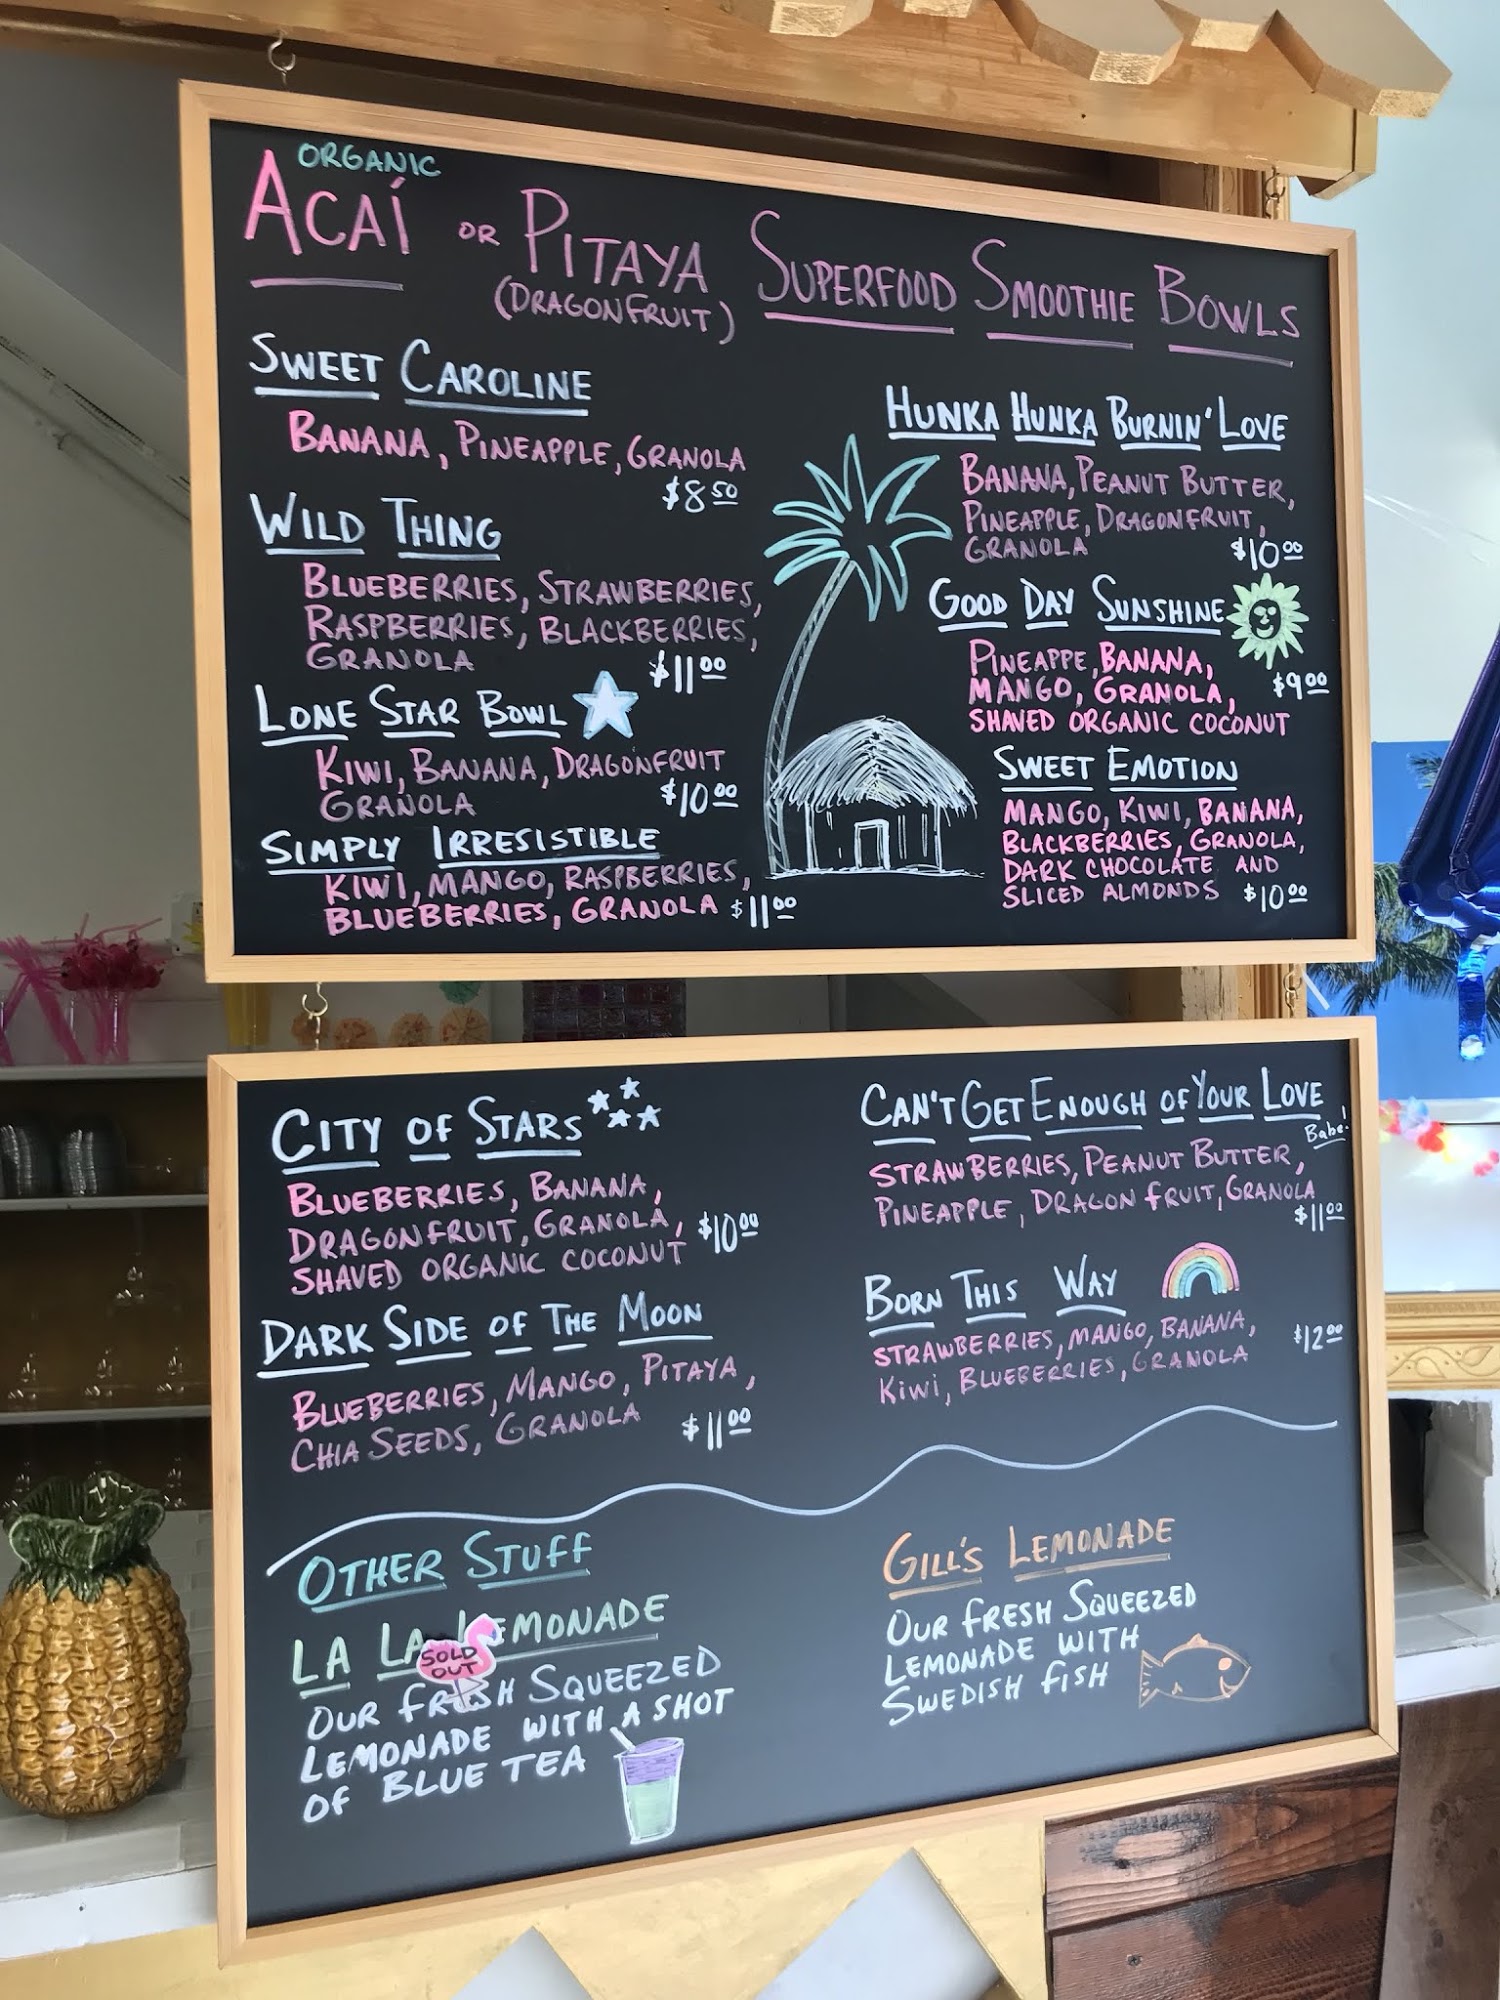 ORGANIC
ACAÍ OR PITAYA SUPERFOOD SMOOTHIE BOWLS
(DRAGONFRUIT)
SWEET CAROLINE
BANANA, PINEAPPLE, GRANOLA
$8.50
WILD THING
BLUEBERRIES, STRAWBERRIES,
RASPBERRIES, BLACKBERRIES,
GRANOLA
$11.00
LONE STAR BOWL
KIWI, BANANA, DRAGONFRUIT
GRANOLA
$10.00
SIMPLY IRRESISTIBLE
KIWI, MANGO, RASPBERRIES,
BLUEBERRIES, GRANOLA $11.00
HUNKA HUNKA BURNIN' LOVE
BANANA, PEANUT BUTTER,
PINEAPPLE, DRAGONFRUIT,
GRANOLA
$10.00
GOOD DAY SUNSHINE
PINEAPPE, BANANA,
MANGO, GRANOLA, $9.00
SHAVED ORGANIC COCONUT
SWEET EMOTION
MANGO, KIWI, BANANA,
BLACKBERRIES, GRANOLA,
DARK CHOCOLATE AND
SLICED ALMONDS $10.00
CITY OF STARS
BLUEBERRIES, BANANA,
DRAGONFRUIT, GRANOLA, $10.00
SHAVED ORGANIC COCONUT
DARK SIDE OF THE MOON
BLUEBERRIES, MANGO, PITAYA,
CHIA SEEDS, GRANOLA $11.00
CAN'T GET ENOUGH OF YOUR LOVE
Babe!
STRAWBERRIES, PEANUT BUTTER,
PINEAPPLE, DRAGON FRUIT, GRANOLA
$11.00
BORN THIS WAY
STRAWBERRIES, MANGO, BANANA, $12.00
KIWI, BLUEBERRIES, GRANOLA
OTHER STUFF
LA LA LEMONADE
SOLD
OUT
OUR FRESH SQUEEZED
LEMONADE WITH A SHOT
OF BLUE TEA
GILL'S LEMONADE
OUR FRESH SQUEEZED
LEMONADE WITH
SWEDISH FISH